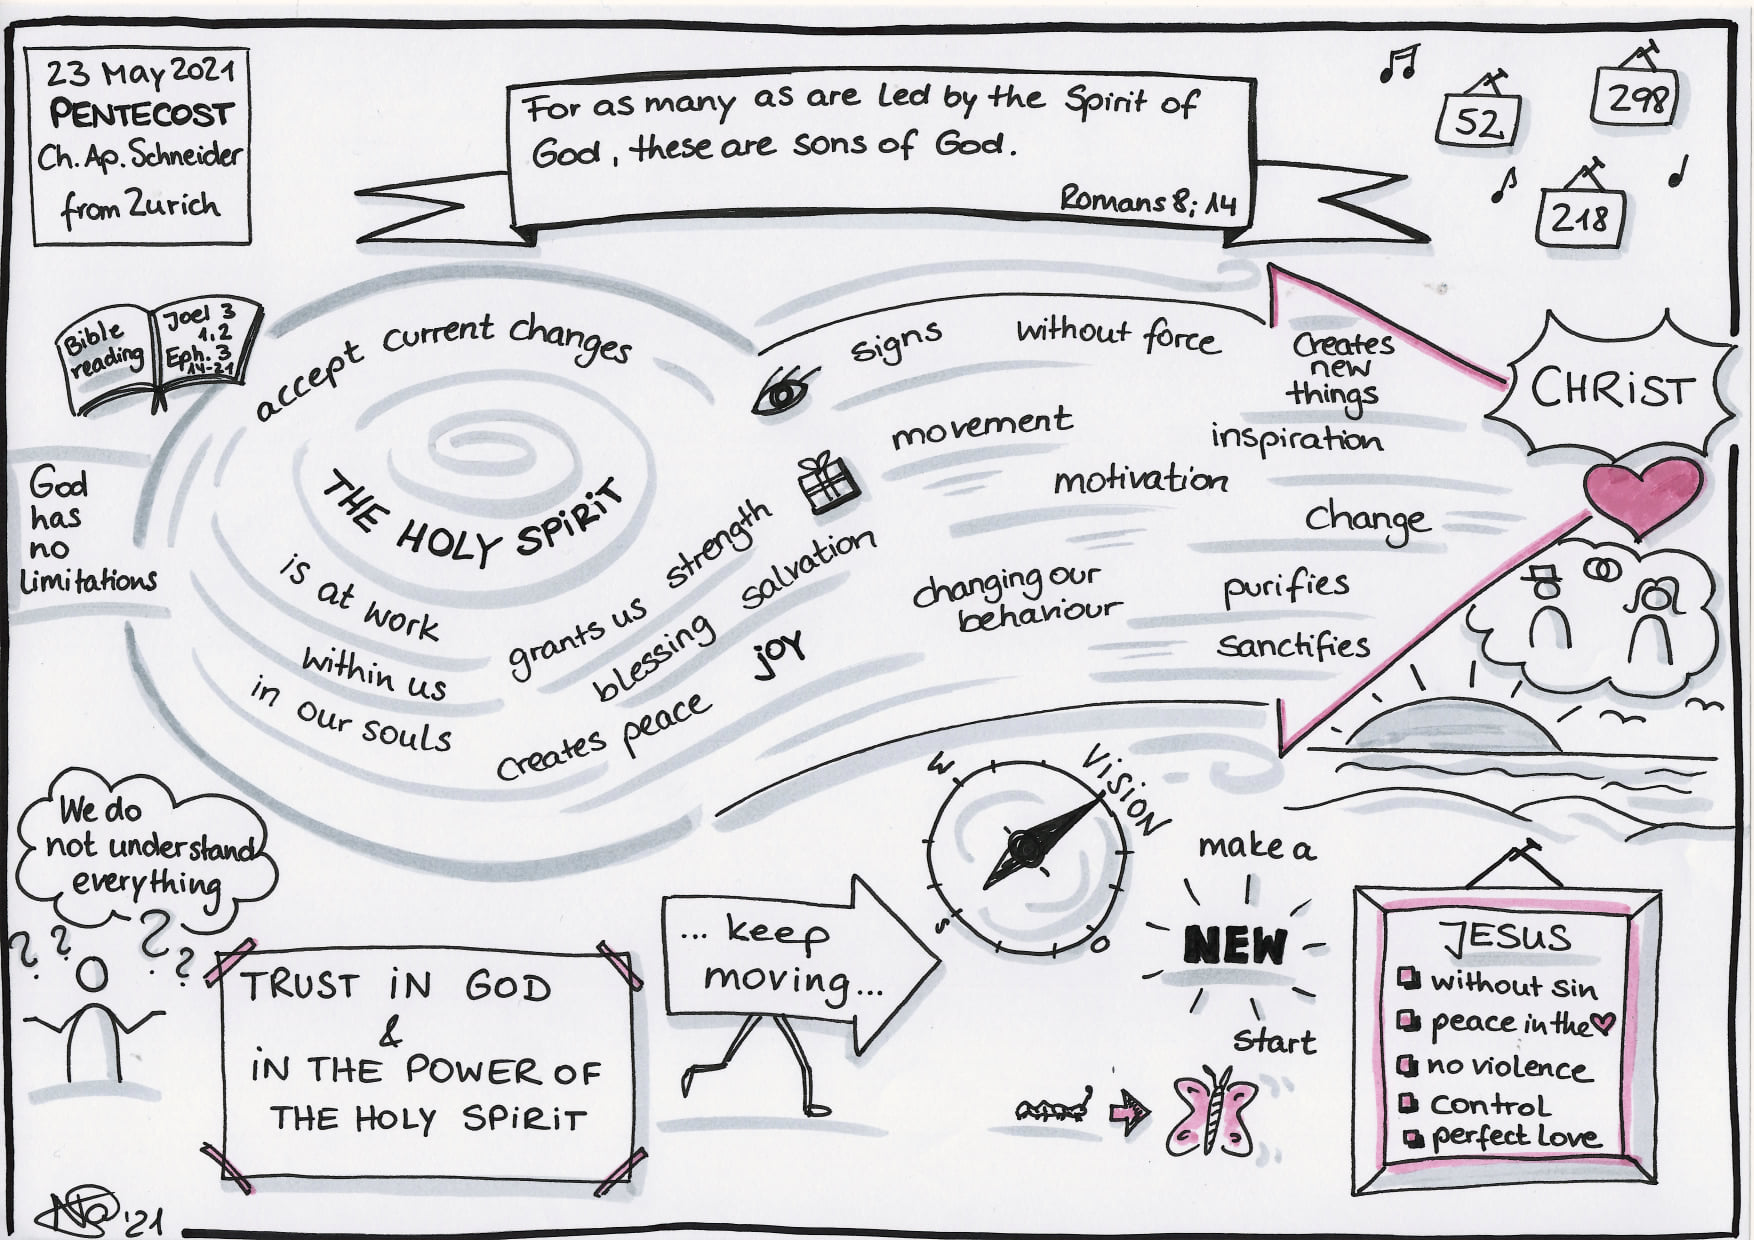 23 May 2021
PENTECOST
Ch. Ap. Schneider
from Zurich
For as many as are led by the Spirit of
God, these are sons of God.
Romans 8; 14
52
298
218
Bible
reading
Joel 3
1,2
Eph. 3
14-21
God
has
no
limitations
accept current changes
THE HOLY SPIRIT
is at work
within us
in our souls
grants us strength
blessing salvation
creates peace joy
signs
without force
movement
motivation
changing our
behaviour
Creates
new
things
inspiration
Change
purifies
Sanctifies
CHRIST
We do
not understand
everything
? ? ? ?
TRUST IN GOD
&
IN THE POWER OF
THE HOLY SPIRIT
... keep
moving...
W
S
O
VISION
make a
NEW
start
JESUS
without sin
peace in the
no violence
control
perfect love
'21